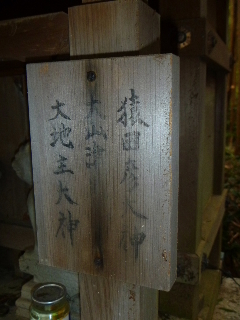 猿田彦大神
大山津
大地主大神